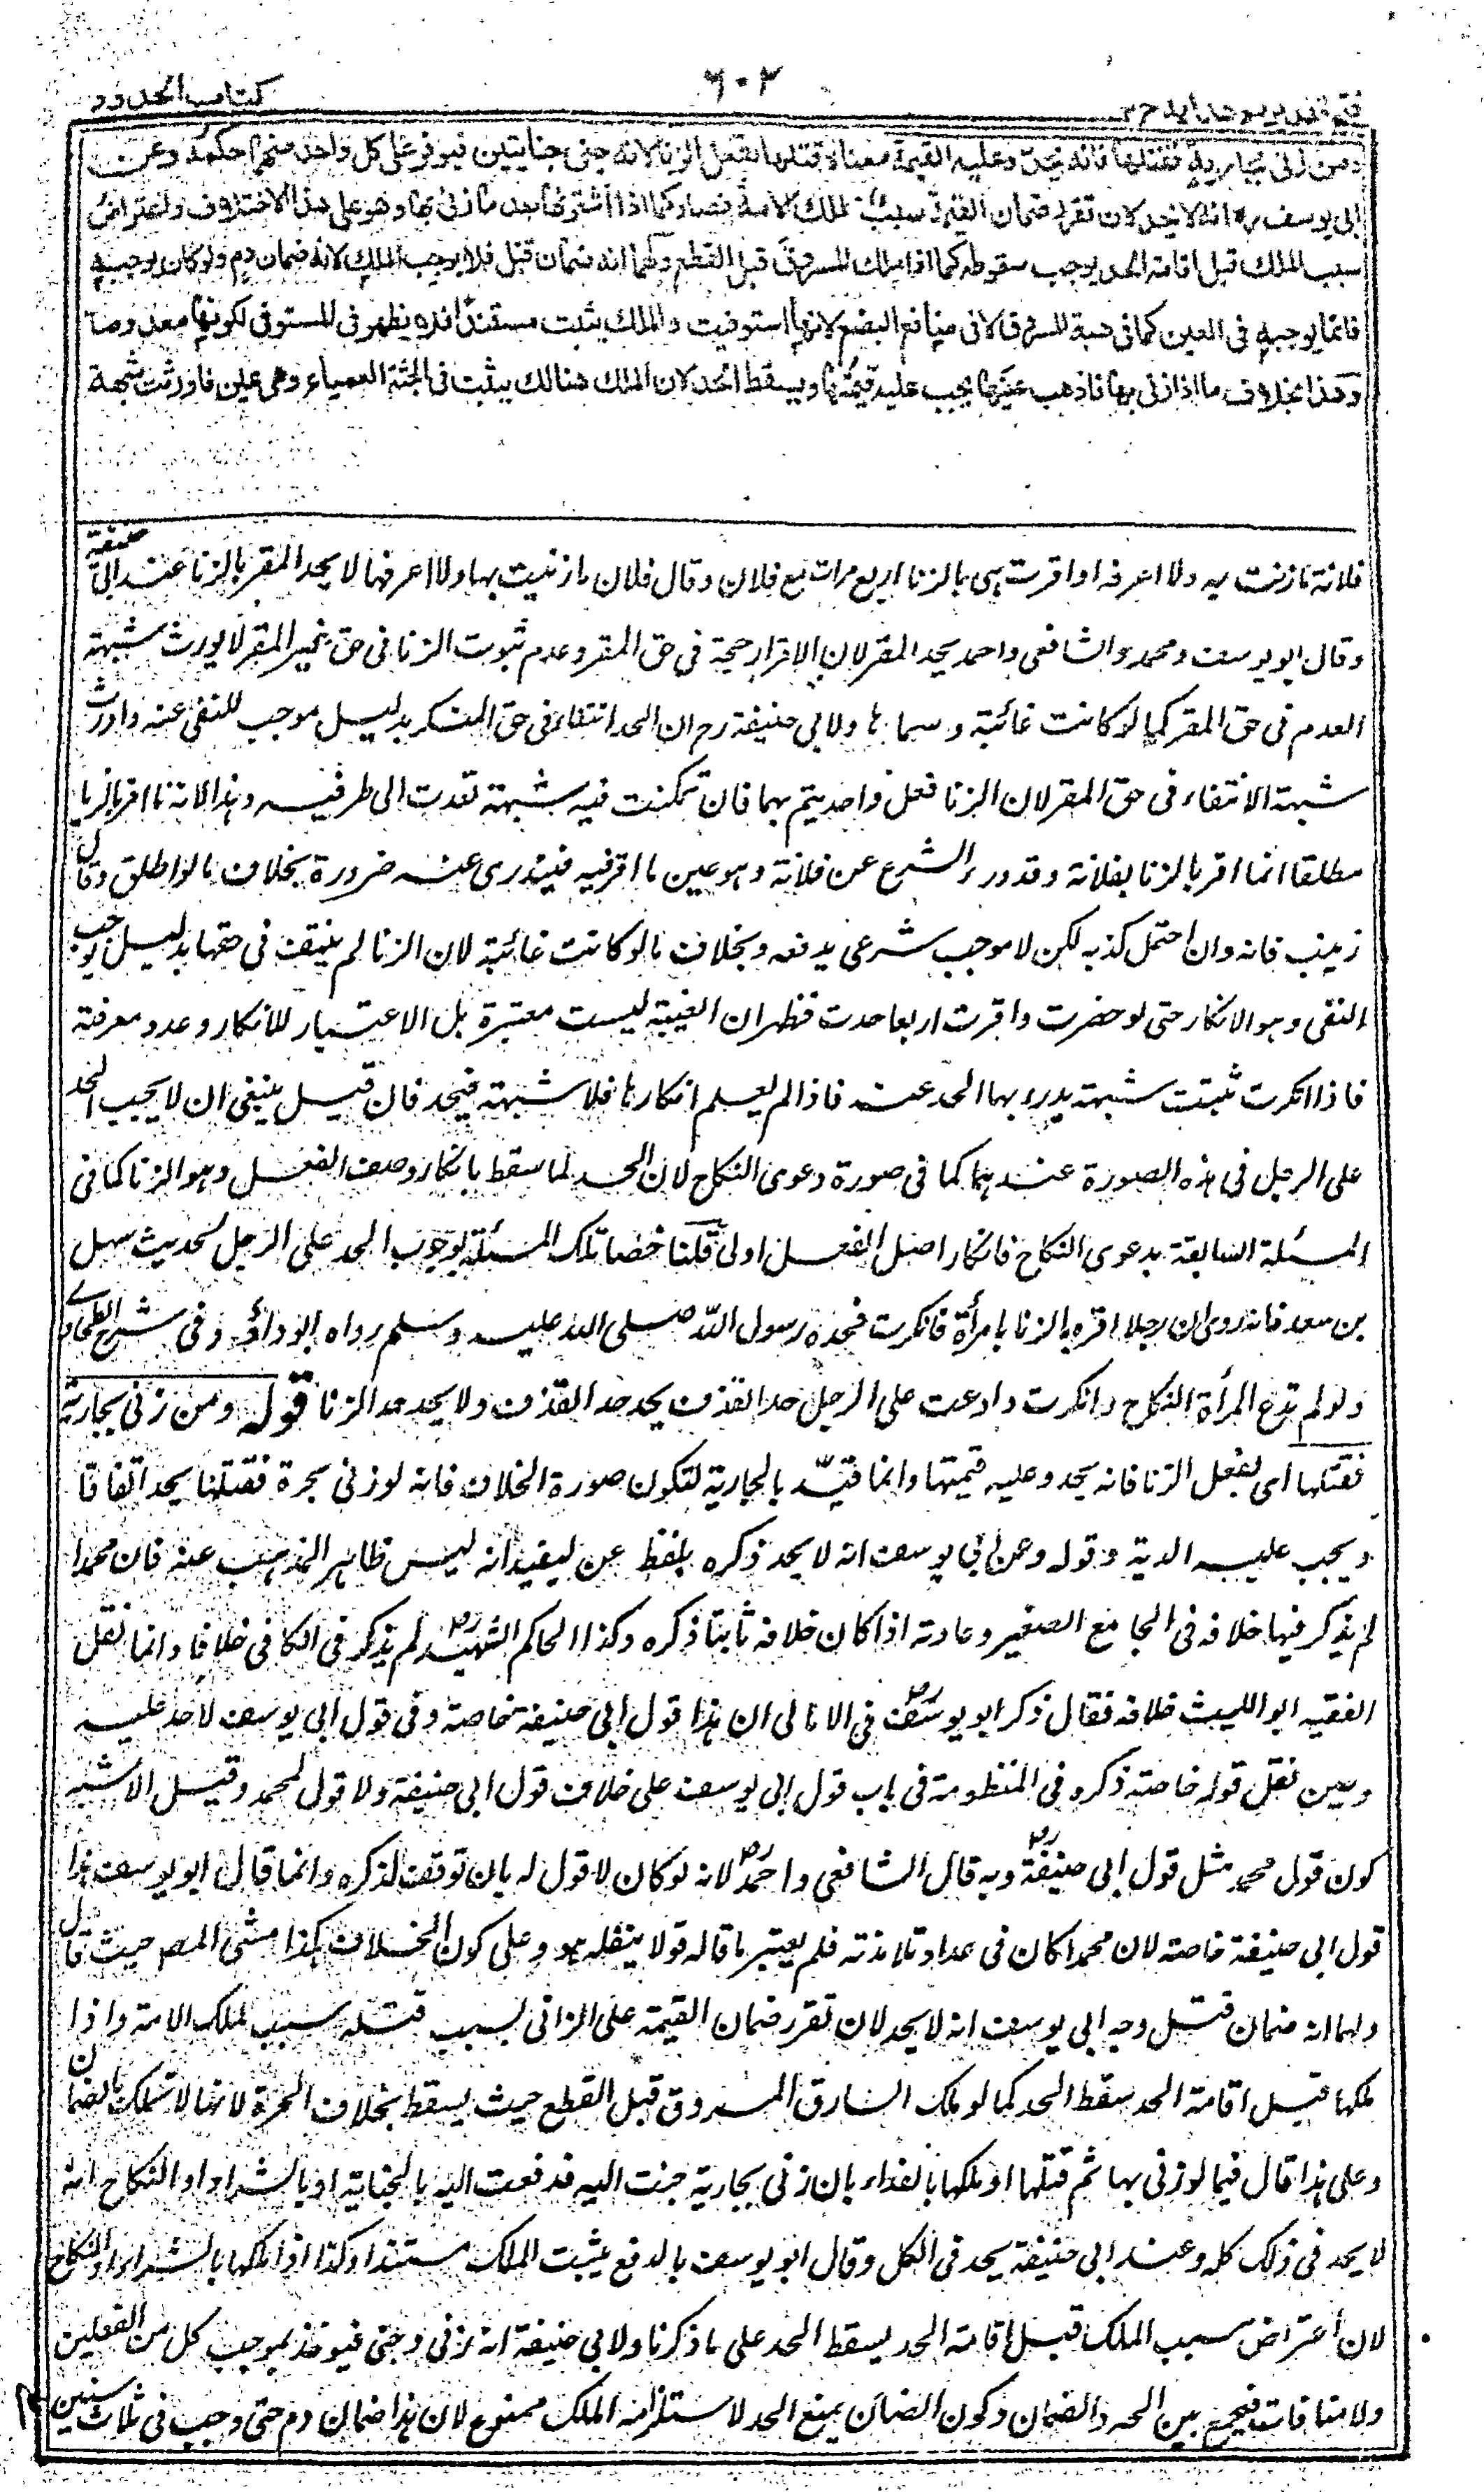 كتاب الحدود
٦٠٢
فتح القدير مع هداية ج ٢
ومن زنى بجارية فقتلها فانه يحد وعليه القيمة معناه قتلها بفعل الزنا لانه جنى جنايتين فيوفر على كل واحد منهما حكمه وعن
ابى يوسف رح انه لا يحد لان تقرر ضمان القيمة سبب لملك الامة فصار كما اذا اشتراها بعد ما زنى بها وهو على هذا الاختلاف واعتراض
سبب الملك قبل اقامة الحد يوجب سقوطه كما اذا ملك المسروق قبل القطع ولهما انه ضمان قتل فلا يوجب الملك لانه ضمان دم ولو كان يوجبه
فانما يوجبه فى العين كما فى هبة المسروق لا فى منافع البضع لانها استوفيت والملك يثبت مستندا فلا يظهر فى المستوفى لكونها معدومة
وهذا بخلاف ما اذا زنى بها فاذهب عينها يجب عليه قيمتها ويسقط الحد لان الملك هنالك يثبت فى الجثة العمياء وهى عين فاورثت شبهة
فلانة ما زنيت به ولا اعرفه او اقرت هى بالزنا اربع مرات مع فلان وقال فلان ما زنيت بها ولا اعرفها لا يحد المقر بالزنا عند ابى حنيفة
وقال ابو يوسف ومحمد والشافعى واحمد يحد المقر لان الاقرار حجة فى حق المقر وعدم ثبوت الزنا فى حق غير المقر لا يورث شبهة
العدم فى حق المقر كما لو كانت غائبة وسماها ولابى حنيفة رح ان الحد انتفى فى حق المنكر بدليل موجب للنفى عنه واورث
شبهة الانتفاء فى حق المقر لان الزنا فعل واحد يتم بهما فان تمكنت فيه شبهة تعدت الى طرفيه وهذا لانه ما اقر بالزنا
مطلقا انما اقر بالزنا بفلانة وقد درء الشرع عن فلانة وهو عين ما اقر فيه فيندرى عنه ضرورة بخلاف ما لو اطلق وقال
زينب فانه وان احتمل كذبه لكن لا موجب شرعى يدفعه وبخلاف ما لو كانت غائبة لان الزنا لم ينتف فى حقها بدليل يوجب
النفى وهو الانكار حتى لو حضرت واقرت اربعا حدت فظهر ان الغيبة ليست معتبرة بل الاعتبار للانكار وعدم معرفته
فاذا انكرت ثبتت شبهة يدرء بها الحد عنه فاذا لم يعلم انكارها فلا شبهة فيحد فان قيل ينبغى ان لا يجب الحد
على الرجل فى هذه الصورة عندهما كما فى صورة دعوى النكاح لان الحد لما سقط بانكار وصف الفعل وهو الزنا كما فى
المسئلة السابقة بدعوى النكاح فانكار اصل الفعل اولى قلنا خصا تلك المسئلة بوجوب الحد على الرجل لحديث سهل
بن سعد فانه روى ان رجلا اقر بالزنا بامرأة فانكرت فحده رسول الله صلى الله عليه وسلم رواه ابو داؤد وفى شرح الطحاوى
ولو لم تدع المرأة النكاح وانكرت وادعت على الرجل حد القذف يحد حد القذف ولا يحد حد الزنا قوله ومن زنى بجارية
فقتلها اى بفعل الزنا فانه يحد وعليه قيمتها وانما قيد بالجارية لتكون صورة الخلاف فانه لو زنى بحرة فقتلها يحد اتفاقا
ويجب عليه الدية وقوله وعن ابى يوسف انه لا يحد ذكره بلفظ عن ليفيد انه ليس ظاهر المذهب عنه فان محمدا
لم يذكر فيها خلافه فى الجامع الصغير وعادته اذا كان خلافه ثابتا ذكره وكذا الحاكم الشهيد رح لم يذكر فى الكافى خلافا وانما نقل
الفقيه ابو الليث خلافه فقال ذكر ابو يوسف رح فى الامالى ان هذا قول ابى حنيفة خاصة وفى قول ابى يوسف لا حد عليه
وحين نقل قوله خاصة ذكره فى المنظومة فى باب قول ابى يوسف على خلاف قول ابى حنيفة ولا قول لمحمد وقيل الاشبه
كون قول محمد مثل قول ابى حنيفة رح وبه قال الشافعى واحمد رح لانه لو كان لا قول له بان توقف لذكره وانما قال ابو يوسف هذا
قول ابى حنيفة خاصة لان محمدا كان فى عداد تلامذته فلم يعتبر ما قاله قولا ينقله هو وعلى كون الخلاف هكذا مشى المصر حيث قال
ولهما انه ضمان قتل وجه ابى يوسف انه لا يحد لان تقرر ضمان القيمة على الزانى بسبب قتله سبب لملك الامة واذا
ملكها قبل اقامة الحد سقط الحد كما لو ملك السارق المسروق قبل القطع حيث يسقط بخلاف الحرة لانها لا تملك بالضمان
وعلى هذا قال فيما لو زنى بها ثم قتلها او ملكها بالفداء بان زنى بجارية جنت اليه فدفعت اليه بالجناية او بالشراء او النكاح انه
لا يحد فى ذلك كله وعند ابى حنيفة يحد فى الكل وقال ابو يوسف بالدفع يثبت الملك مستندا وكذا اذا ملكها بالشراء او النكاح
لان اعتراض سبب الملك قبل اقامة الحد يسقط الحد على ما ذكرنا ولابى حنيفة انه زنى وجنى فيوخذ بموجب كل من الفعلين
ولا منافات فيجمع بين الحد والضمان وكون الضمان يمنع الحد لاستلزامه الملك ممنوع لان هذا ضمان دم حتى وجب فى ثلاث سنين